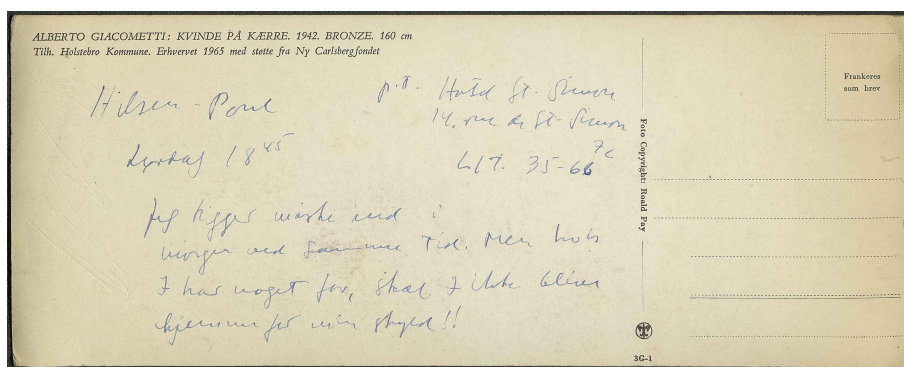 ALBERTO GIACOMETTI: KVINDE PÅ KÆRRE. 1942. BRONZE. 160 cm
Tilh. Holstebro Kommune. Erhvervet 1965 med støtte fra Ny Carlsbergfondet
Frankeres
som brev
Hilsen - Poul
p.t. Hotel St. Simon
14, rue de St. Simon
Lørdag 18 45
LIT. 35-66
7e
Jeg kigger måske ind i
morgen ved samme tid. Men hvis
I har noget for, skal I ikke blive
hjemme for min skyld!!
Foto Copyright: Roald Pay
3G-1